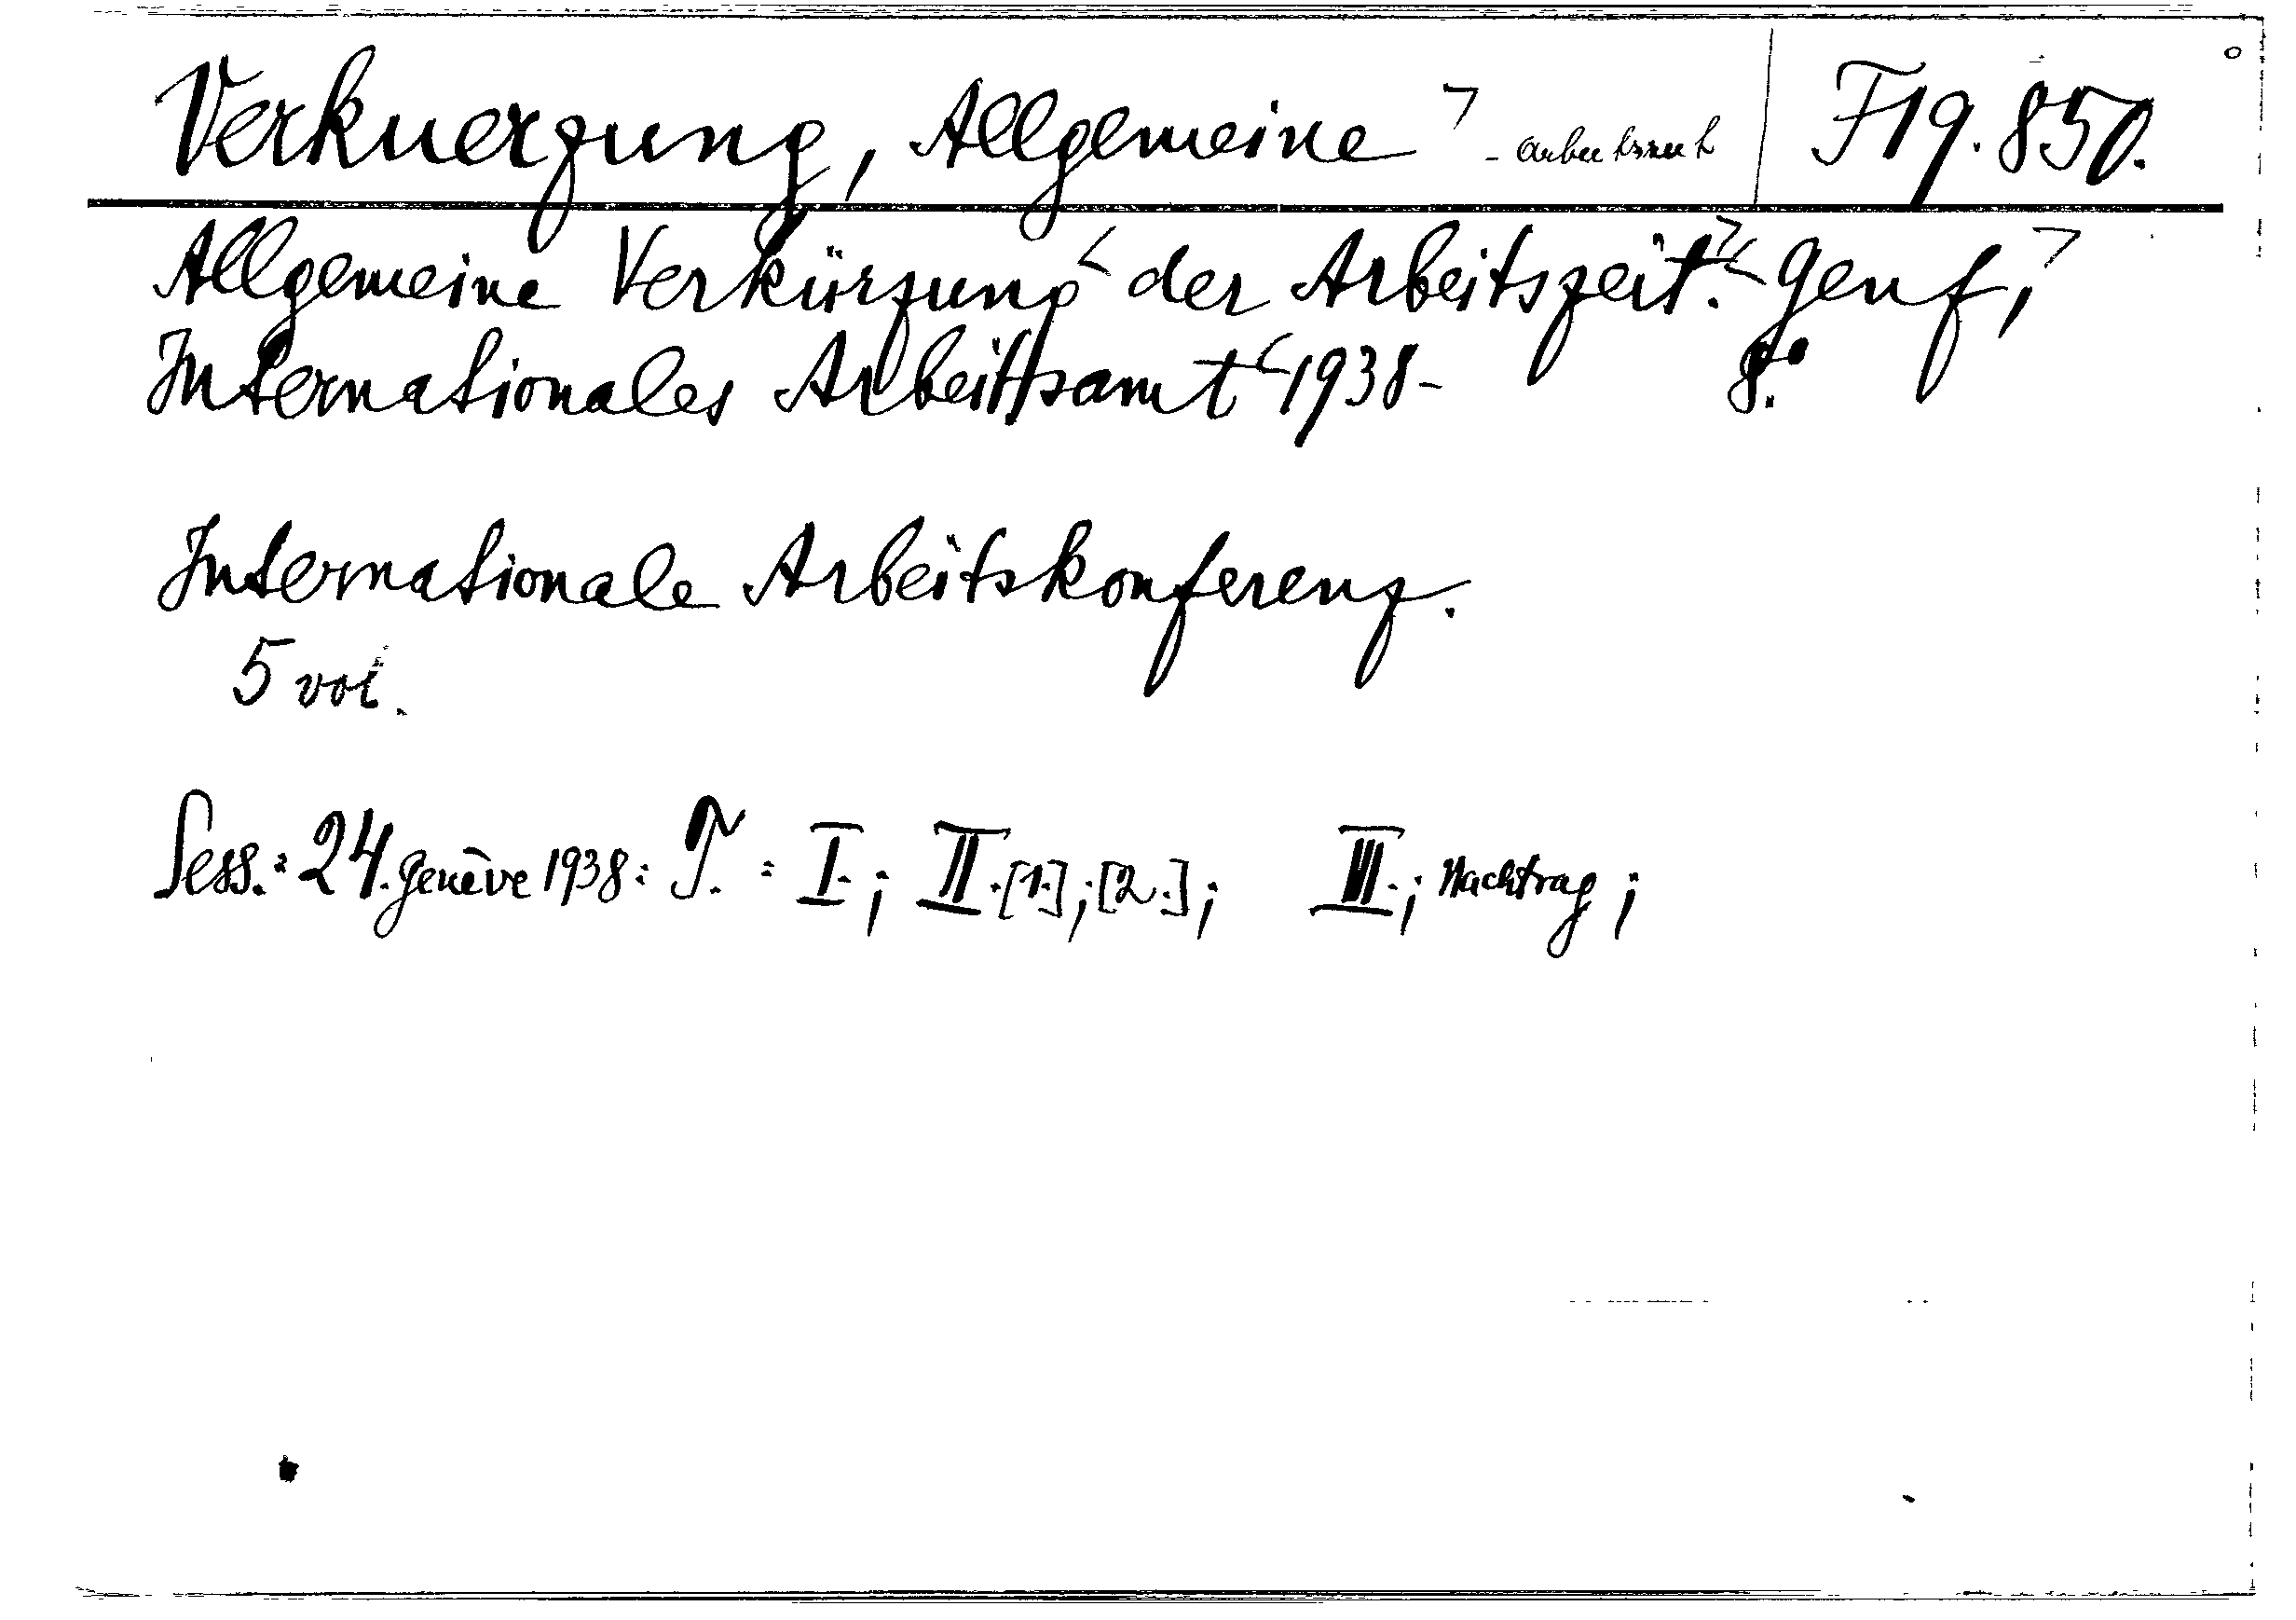 Verkuerzung, Allgemeine - arbeitszeit F19.850.
Allgemeine Verkürzung der Arbeitszeit. Genf,
Internationales Arbeitsamt 1938- 8.°
Internationale Arbeitskonferenz.
5 vol.
Sess.: 24. Genève 1938: T. : I.; II.[1.]; [2.]; III.; Nachtrag;